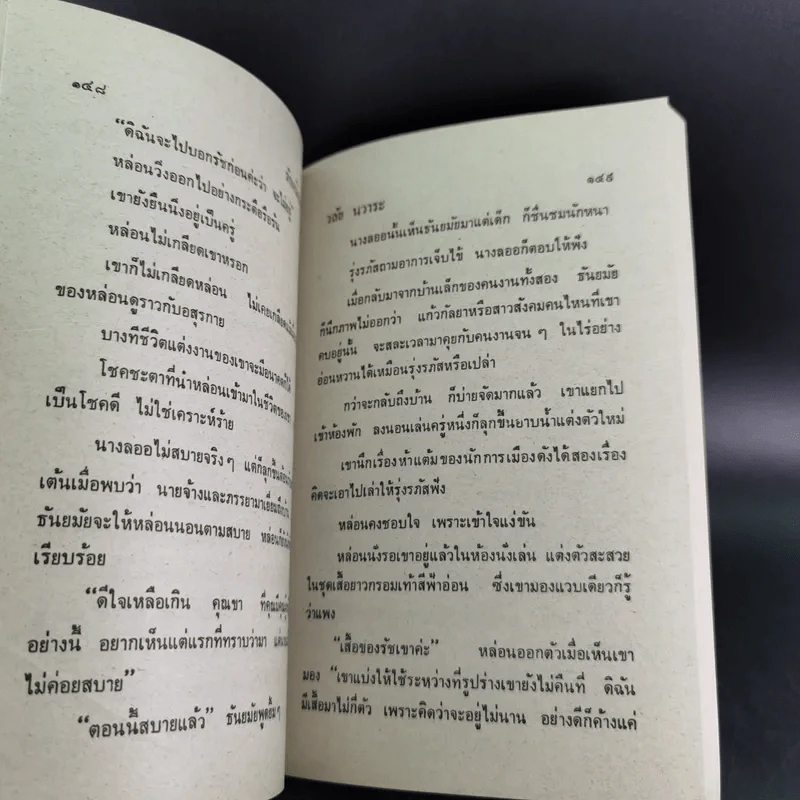 ๑๔๘
“ดิฉันจะไปบอกรัชก่อนค่ะว่า
หล่อนวิ่งออกไปอย่างกระตือรือร้น
เขายังยืนนิ่งอยู่เป็นครู่
หล่อนไม่เกลียดเขาหรอก
เขาก็ไม่เกลียดหล่อน ไม่เคยเกลียด
ของหล่อนดูราวกับอสุรกาย
บางทีชีวิตแต่งงานของเขาจะมีอนาคต
โชคชะตาที่นำหล่อนเข้ามาในชีวิตของเขา
เป็นโชคดี ไม่ใช่เคราะห์ร้าย
นางลออไม่สบายจริงๆ แต่ก็ลุกขึ้น
เต้นเมื่อพบว่า นายจ้างและภรรยามาเยี่ยม
ธันยมัยจะให้หล่อนนอนตามสบาย หล่อนก็
เรียบร้อย
“ดีใจเหลือเกิน คุณขา ที่คุณ
อย่างนี้ อยากเห็นแต่แรกที่ทราบว่ามา
ไม่ค่อยสบาย”
“ตอนนี้สบายแล้ว” ธันยมัยพูดยิ้มๆ
วลัย นวาระ
๑๔๙
นางลออนั้นเห็นธันยมัยมาแต่เด็ก ก็ชื่นชมนักหนา
รุ่งรภัสถามอาการเจ็บไข้ นางลออก็ตอบให้ฟัง
เมื่อกลับมาจากบ้านเล็กของคนงานทั้งสอง ธันยมัย
ก็นึกภาพไม่ออกว่า แก้วกัลยาหรือสาวสังคมคนไหนที่เขา
คบอยู่นั้น จะสละเวลามาคุยกับคนงานจน ๆ ในไร่อย่าง
อ่อนหวานได้เหมือนรุ่งรภัสหรือเปล่า
กว่าจะกลับถึงบ้าน ก็บ่ายจัดมากแล้ว เขาแยกไป
เข้าห้องพัก ลงนอนเล่นครู่หนึ่งก็ลุกขึ้นอาบน้ำแต่งตัวใหม่
เขานึกเรื่องห้าแต้มของนักการเมืองดังได้สองเรื่อง
คิดจะเอาไปเล่าให้รุ่งรภัสฟัง
หล่อนคงชอบใจ เพราะเข้าใจแง่ขัน
หล่อนนั่งรอเขาอยู่แล้วในห้องนั่งเล่น แต่งตัวสะสวย
ในชุดเสื้อยาวกรอมเท้าสีฟ้าอ่อน ซึ่งเขามองแวบเดียวก็รู้
ว่าแพง
“เสื้อของรัชเขาค่ะ” หล่อนออกตัวเมื่อเห็นเขา
มอง “เขาแบ่งให้ใช้ระหว่างที่รูปร่างเขายังไม่คืนที่ ดิฉัน
มีเสื้อมาไม่กี่ตัว เพราะคิดว่าจะอยู่ไม่นาน อย่างดีก็ค้างแค่